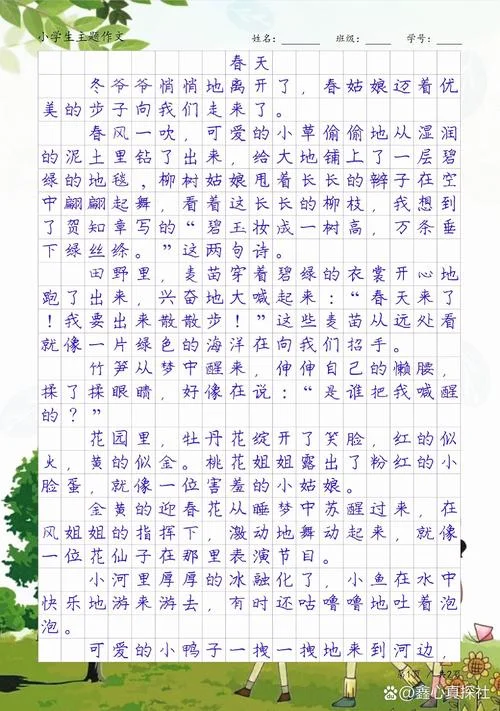 小学生主题作文 姓名：______ 班级：______ 学号：______
春天
冬爷爷悄悄地离开了，春姑娘迈着优
美的步子向我们走来了。
春风一吹，可爱的小草偷偷地从湿润
的泥土里钻了出来，给大地铺上了一层碧
绿的地毯，柳树姑娘甩着长长的辫子在空
中翩翩起舞，看着这长长的柳枝，我想到
了贺知章写的“碧玉妆成一树高，万条垂
下绿丝绦。”这两句诗。
田野里，麦苗穿着碧绿的衣裳开心地
跑了出来，兴奋地大喊起来：“春天来了
！我要出来散散步！”这些麦苗从远处看
就像一片绿色的海洋在向我们招手。
竹笋从梦中醒来，伸伸自己的懒腰，
揉了揉眼睛，好像在说：“是谁把我喊醒
的？”
花园里，牡丹花绽开了笑脸，红的似
火，黄的似金。桃花姐姐露出了粉红的小
脸蛋，就像一位害羞的小姑娘。
金黄的迎春花从睡梦中苏醒过来，在
风姐姐的指挥下，激动地舞动起来，就像
一位花仙子在那里表演节目。
小河里厚厚的冰融化了，小鱼在水中
快乐地游来游去，有时还咕噜噜地吐着泡
泡。
可爱的小鸭子一拽一拽地来到河边，
@鑫心真探社